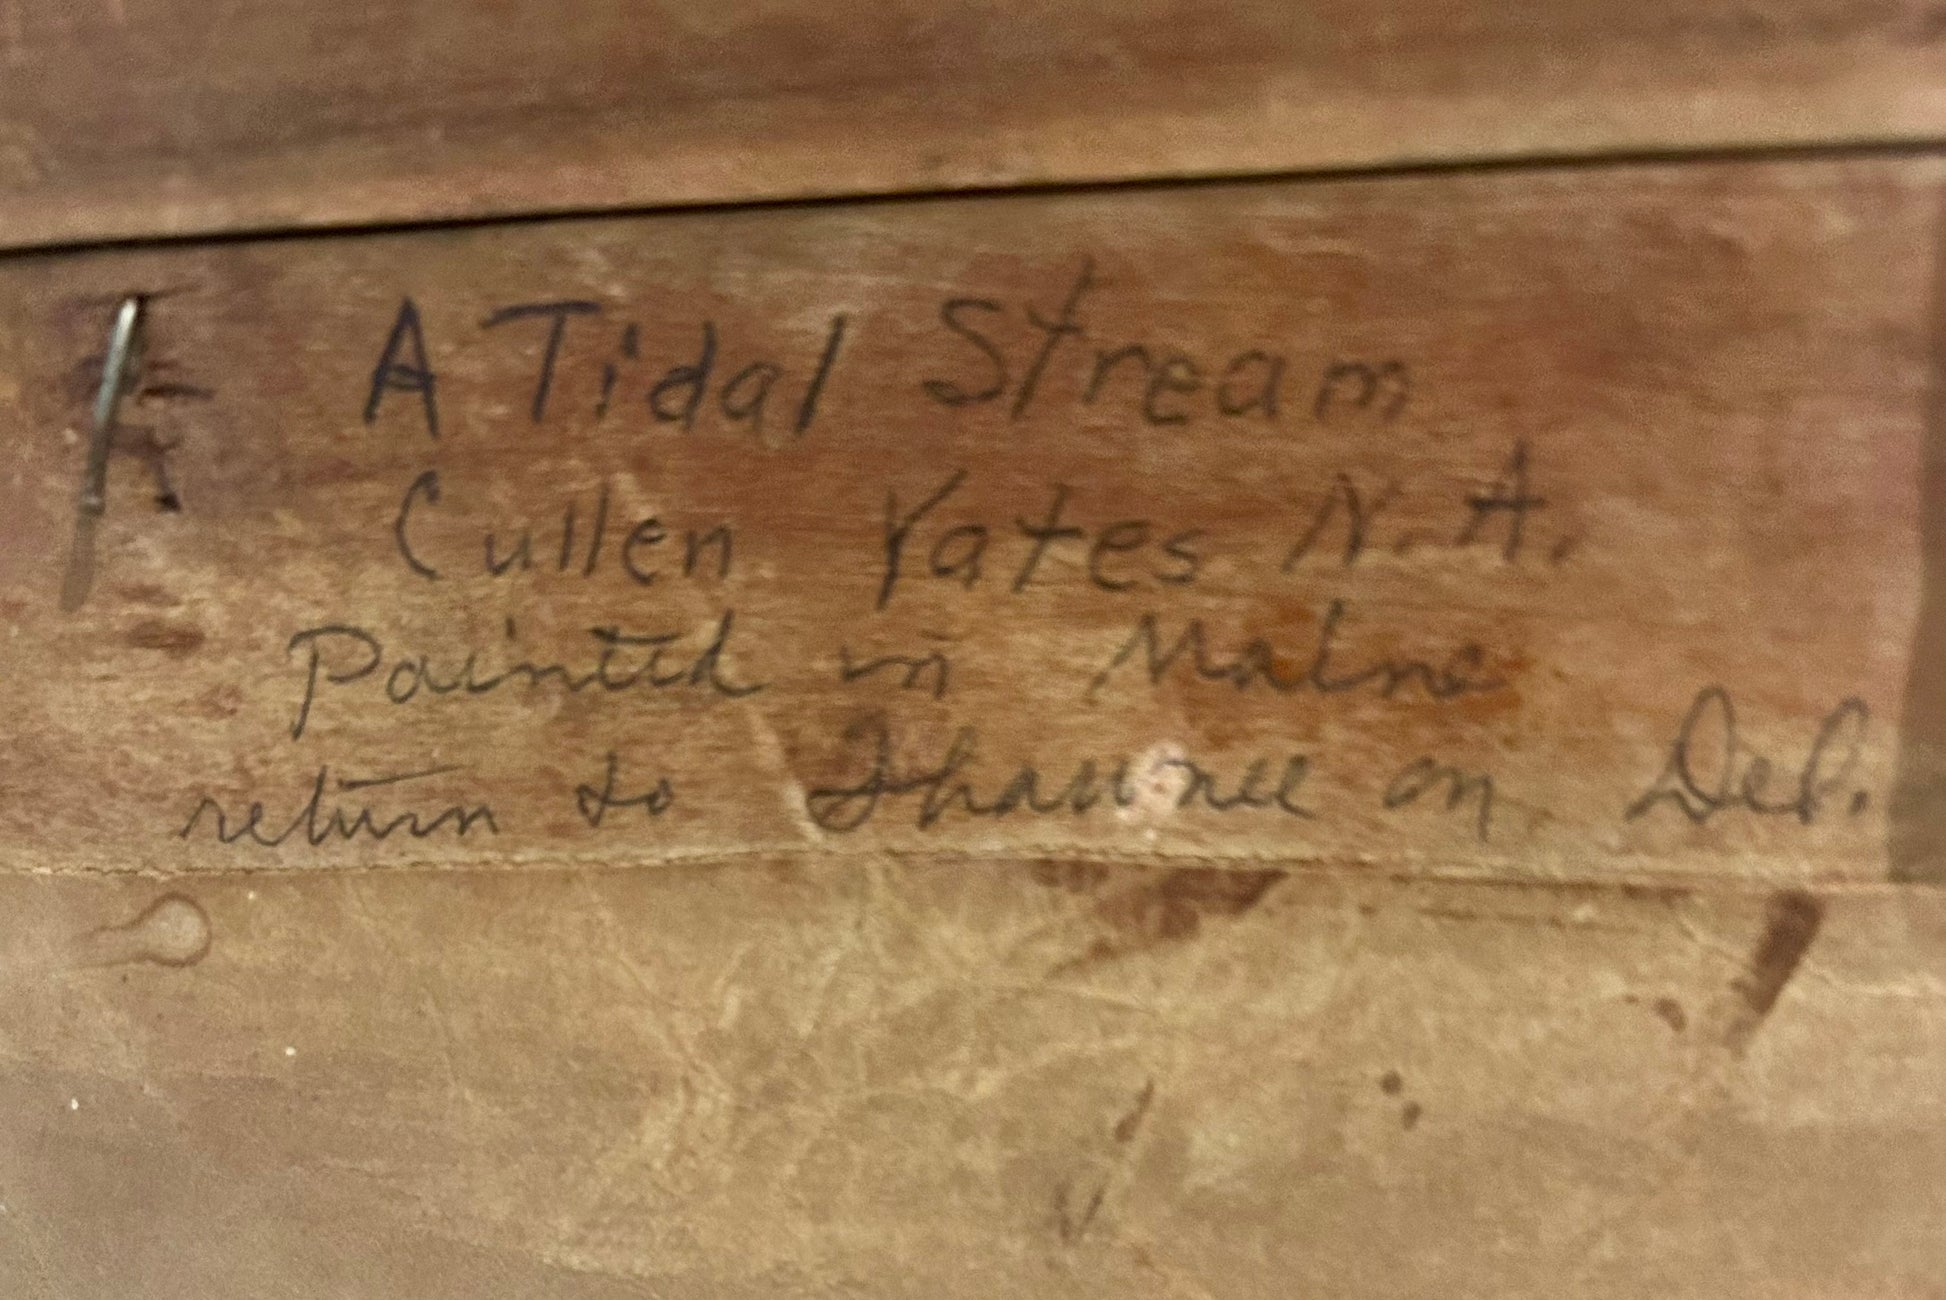 A Tidal Stream
Cullen Yates N.A.
Painted in Maine
return to Shawnee on Del.